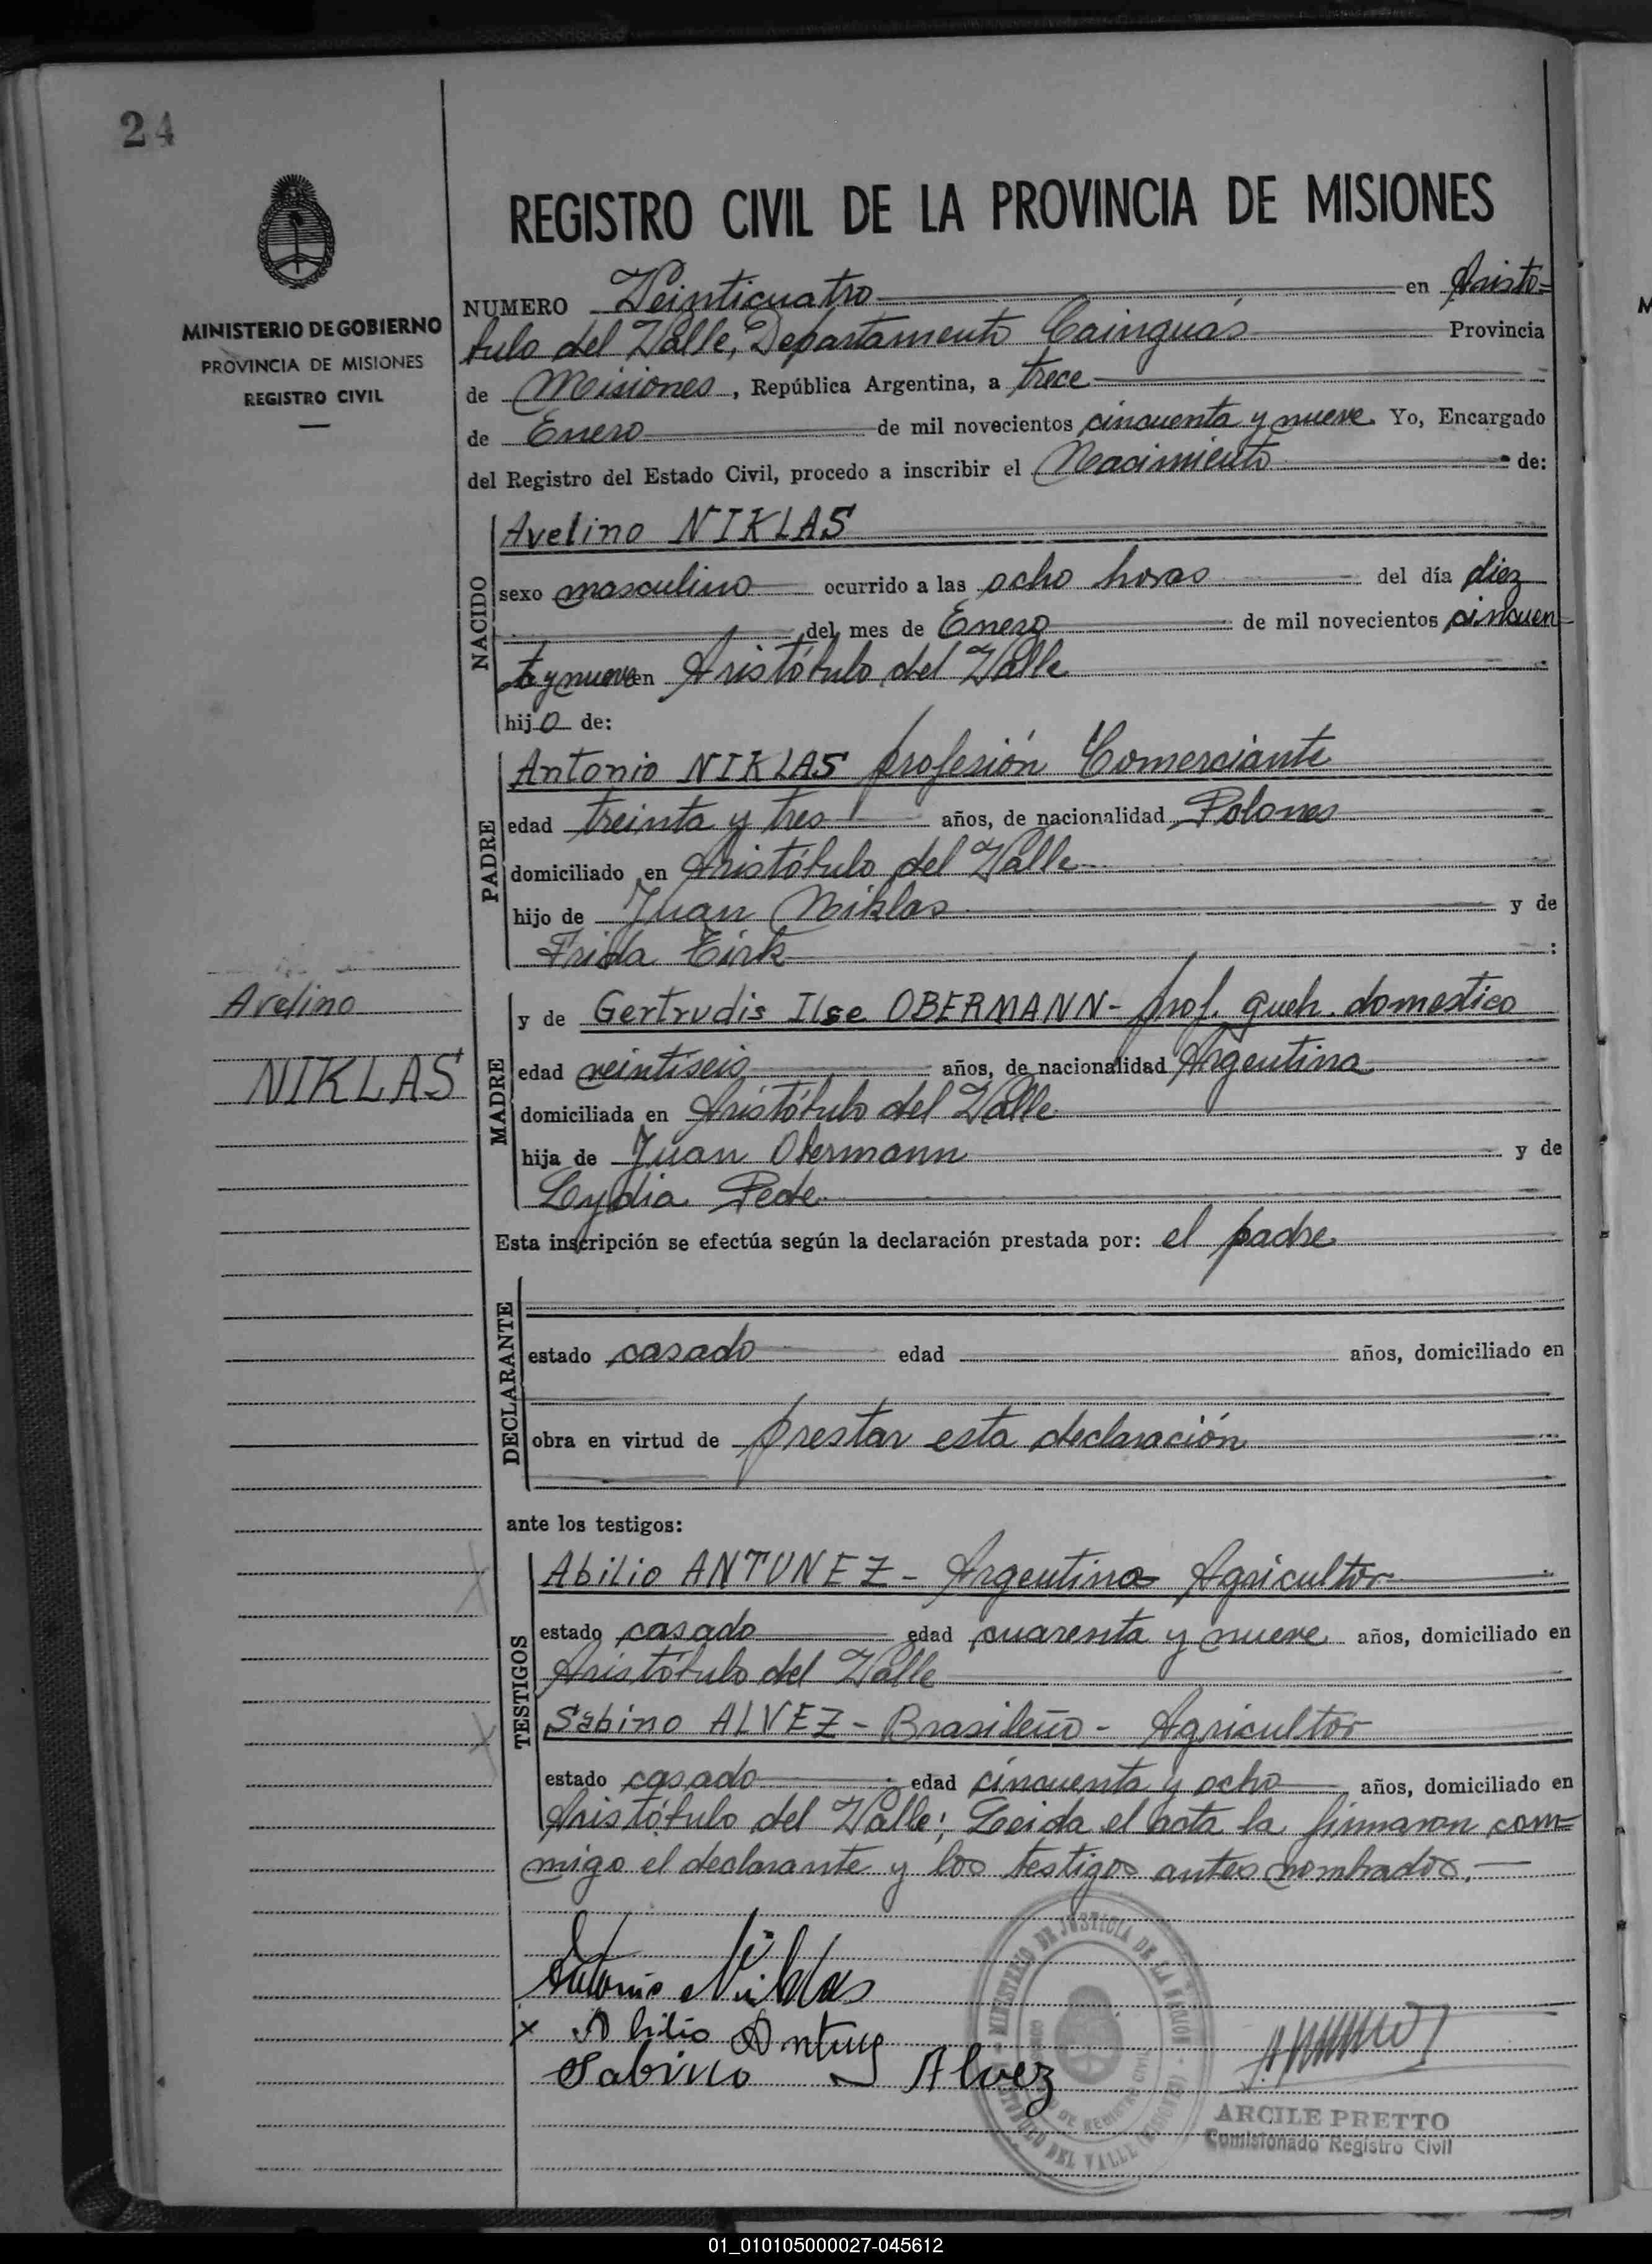 24
MINISTERIO DE GOBIERNO
PROVINCIA DE MISIONES
REGISTRO CIVIL
REGISTRO CIVIL DE LA PROVINCIA DE MISIONES
NUMERO Veinticuatro en Aristó=
bulo del Valle, Departamento Cainguás Provincia
de Misiones, República Argentina, a trece
de Enero de mil novecientos cincuenta y nueve. Yo, Encargado
del Registro del Estado Civil, procedo a inscribir el Nacimiento de:
NACIDO
Avelino NIKLAS
sexo masculino ocurrido a las ocho horas del día diez
del mes de Enero de mil novecientos cincuen
ta y nueve en Aristóbulo del Valle
hijo de:
PADRE
Antonio NIKLAS profesión Comerciante
edad treinta y tres años, de nacionalidad Polones
domiciliado en Aristóbulo del Valle
hijo de Juan Niklas y de
Frida :
Avelino
NIKLAS
MADRE
y de Gertrudis Ilse OBERMANN - prof. queh. domestico
edad veintiseis años, de nacionalidad Argentina
domiciliada en Aristóbulo del Valle
hija de Juan Obermann y de
Lydia
Esta inscripción se efectúa según la declaración prestada por: el padre
DECLARANTE
estado casado edad años, domiciliado en
obra en virtud de prestar esta declaración
ante los testigos:
TESTIGOS
Abilio ANTUNEZ - Argentino Agricultor
estado casado edad cuarenta y nueve años, domiciliado en
Aristóbulo del Valle
Sabino ALVEZ - Brasileño - Agricultor
estado casado edad cincuenta y ocho años, domiciliado en
Aristóbulo del Valle; Leida el acta la firmaron con=
migo el declarante y los testigos antes nombrados.
Antonio Niklas
x Abilio
Sabino Alvez
MINISTERIO DE JUSTICIA DE LA NACION
DEL VALLE (MISIONES)
ARCILE PRETTO
Comisionado Registro Civil
01_010105000027-045612